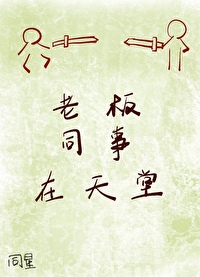 老板
同事
在天堂
同星